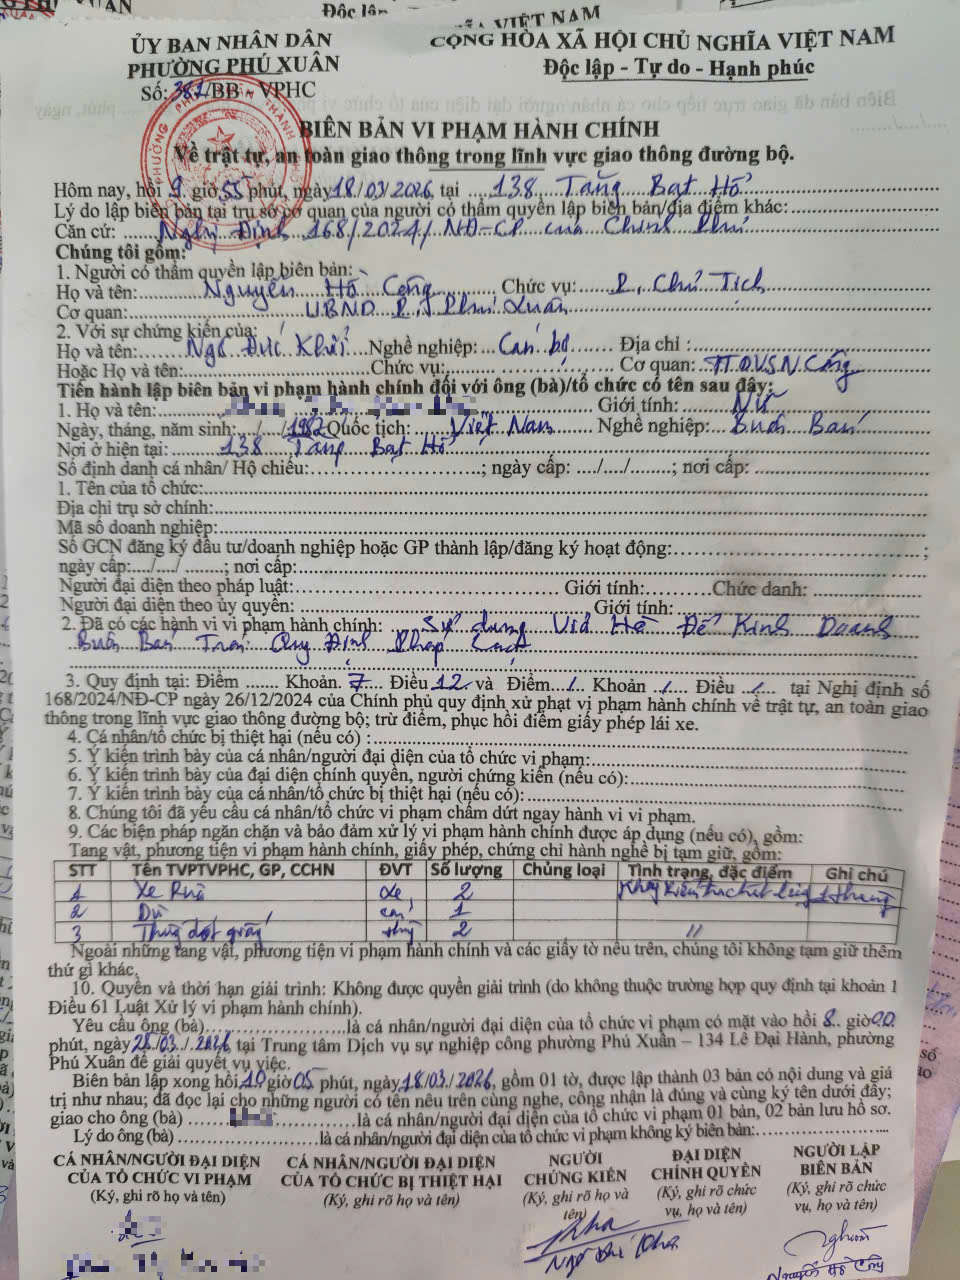 Độc lập
VIỆT NAM
ỦY BAN NHÂN DÂN
PHƯỜNG PHÚ XUÂN
CỘNG HÒA XÃ HỘI CHỦ NGHĨA VIỆT NAM
Độc lập - Tự do - Hạnh phúc
Số: 381/BB - VPHC
BIÊN BẢN VI PHẠM HÀNH CHÍNH
Về trật tự, an toàn giao thông trong lĩnh vực giao thông đường bộ.
Hôm nay, hồi 9 giờ 55 phút, ngày 18/03/2026, tại 138 Tăng Bạt Hổ
Lý do lập biên bản tại trụ sở cơ quan của người có thẩm quyền lập biên bản/địa điểm khác:
Căn cứ: Nghị Định 168/2024/NĐ-CP của Chính Phủ
Chúng tôi gồm:
1. Người có thẩm quyền lập biên bản:
Họ và tên: Nguyễn Hồ Công Chức vụ: P. Chủ Tịch
Cơ quan: UBND P. Phú Xuân
2. Với sự chứng kiến của:
Họ và tên: Ngô Đức Khải Nghề nghiệp: Cán bộ Địa chỉ :
Hoặc Họ và tên: Chức vụ: Cơ quan: TTDVSN Công
Tiến hành lập biên bản vi phạm hành chính đối với ông (bà)/tổ chức có tên sau đây:
1. Họ và tên: Giới tính: Nữ
Ngày, tháng, năm sinh: / /1982 Quốc tịch: Việt Nam Nghề nghiệp: Buôn Bán
Nơi ở hiện tại: 138 Tăng Bạt Hổ
Số định danh cá nhân/ Hộ chiếu: ; ngày cấp: / / ; nơi cấp:
1. Tên của tổ chức:
Địa chỉ trụ sở chính:
Mã số doanh nghiệp:
Số GCN đăng ký đầu tư/doanh nghiệp hoặc GP thành lập/đăng ký hoạt động: ;
ngày cấp: / / ; nơi cấp:
Người đại diện theo pháp luật: Giới tính: Chức danh:
Người đại diện theo ủy quyền: Giới tính:
2. Đã có các hành vi vi phạm hành chính: Sử dụng Vỉa Hè Để Kinh Doanh
Buôn Bán Trái Quy Định Pháp Luật
3. Quy định tại: Điểm Khoản 7 Điều 12 và Điểm / Khoản / Điều / tại Nghị định số
168/2024/NĐ-CP ngày 26/12/2024 của Chính phủ quy định xử phạt vi phạm hành chính về trật tự, an toàn giao
thông trong lĩnh vực giao thông đường bộ; trừ điểm, phục hồi điểm giấy phép lái xe.
4. Cá nhân/tổ chức bị thiệt hại (nếu có) :
5. Ý kiến trình bày của cá nhân/người đại diện của tổ chức vi phạm:
6. Ý kiến trình bày của đại diện chính quyền, người chứng kiến (nếu có):
7. Ý kiến trình bày của cá nhân/tổ chức bị thiệt hại (nếu có):
8. Chúng tôi đã yêu cầu cá nhân/tổ chức vi phạm chấm dứt ngay hành vi vi phạm.
9. Các biện pháp ngăn chặn và bảo đảm xử lý vi phạm hành chính được áp dụng (nếu có), gồm:
Tang vật, phương tiện vi phạm hành chính, giấy phép, chứng chỉ hành nghề bị tạm giữ, gồm:
STT Tên TVPTVPHC, GP, CCHN ĐVT Số lượng Chủng loại Tình trạng, đặc điểm Ghi chú
1 Xe Rùa xe 2
2 Dù cái 1
3 Thùng giấy 2 //
Ngoài những tang vật, phương tiện vi phạm hành chính và các giấy tờ nêu trên, chúng tôi không tạm giữ thêm
thứ gì khác.
10. Quyền và thời hạn giải trình: Không được quyền giải trình (do không thuộc trường hợp quy định tại khoản 1
Điều 61 Luật Xử lý vi phạm hành chính).
Yêu cầu ông (bà) là cá nhân/người đại diện của tổ chức vi phạm có mặt vào hồi 8 giờ 00
phút, ngày 28/03/2026, tại Trung tâm Dịch vụ sự nghiệp công phường Phú Xuân – 134 Lê Đại Hành, phường
Phú Xuân để giải quyết vụ việc.
Biên bản lập xong hồi 10 giờ 05 phút, ngày 18/03/2026, gồm 01 tờ, được lập thành 03 bản có nội dung và giá
trị như nhau; đã đọc lại cho những người có tên nêu trên cùng nghe, công nhận là đúng và cùng ký tên dưới đây;
giao cho ông (bà) là cá nhân/người đại diện của tổ chức vi phạm 01 bản, 02 bản lưu hồ sơ.
Lý do ông (bà) là cá nhân/người đại diện của tổ chức vi phạm không ký biên bản:
CÁ NHÂN/NGƯỜI ĐẠI DIỆN CỦA TỔ CHỨC VI PHẠM (Ký, ghi rõ họ và tên)
CÁ NHÂN/NGƯỜI ĐẠI DIỆN CỦA TỔ CHỨC BỊ THIỆT HẠI (Ký, ghi rõ họ và tên)
NGƯỜI CHỨNG KIẾN (Ký, ghi rõ họ và tên)
ĐẠI DIỆN CHÍNH QUYỀN (Ký, ghi rõ chức vụ, họ và tên)
NGƯỜI LẬP BIÊN BẢN (Ký, ghi rõ chức vụ, họ và tên)
Nguyễn Hồ Công